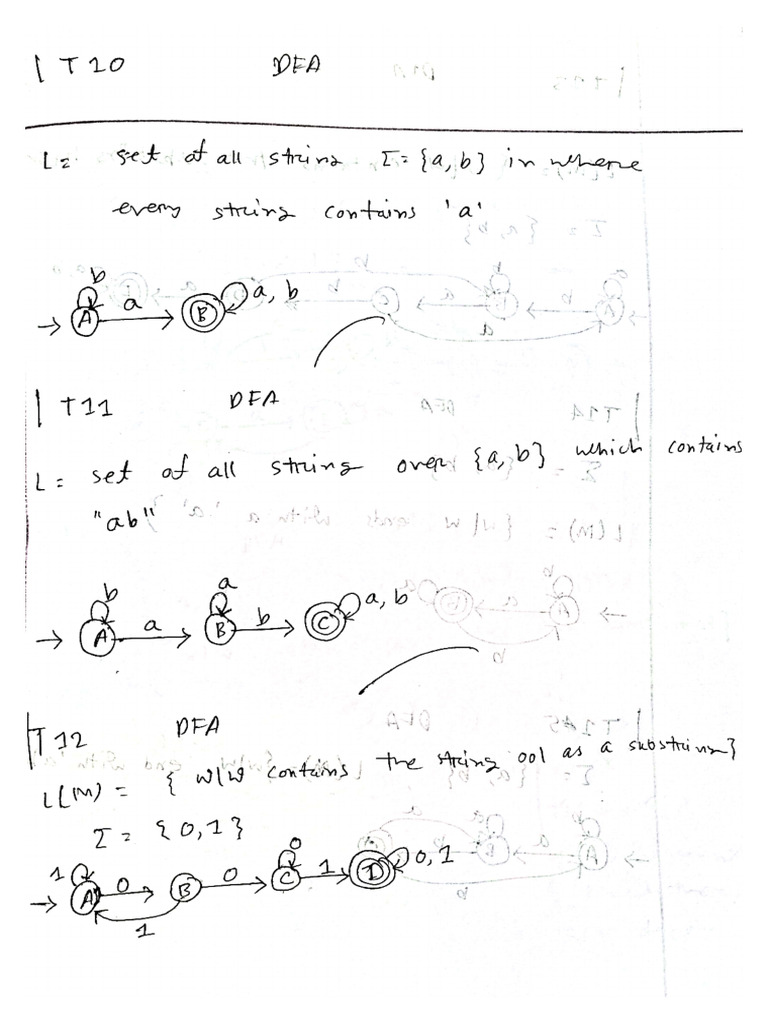 T10 DFA
L = set of all string Σ = {a, b} in where
every string contains 'a'
b a a, b
A B
T11 DFA
L = set of all string over {a, b} which contains
"ab"
b a a, b
a b
A B C
T12 DFA
L(M) = { w/w contains the string 001 as a substring}
Σ = {0, 1}
1 0 0 0 1 0, 1
A B C D
1